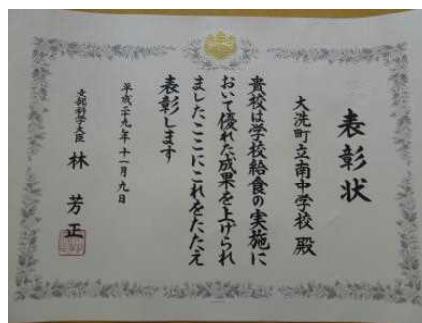 表彰状
大洗町立南中学校 殿
貴校は学校給食の実施に
おいて優れた成果を上げられ
ましたここにこれをたたえ
表彰します
平成二十九年十一月九日
文部科学大臣 林 芳正